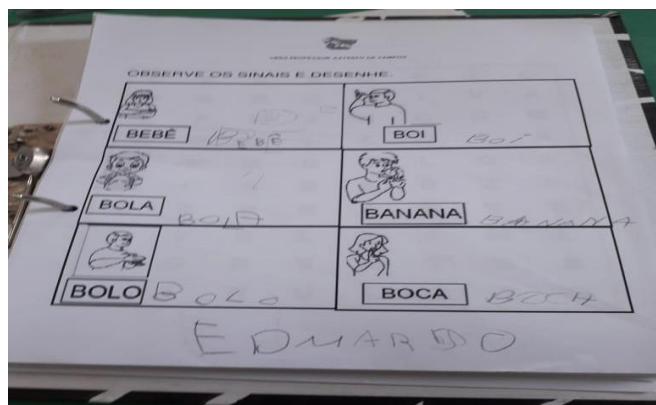 OBSERVE OS SINAIS E DESENHE.
BEBÊ BEBÊ
BOI BOI
BOLA BOLA
BANANA BANANA
BOLO BOLO
BOCA BOCA
EDUARDO